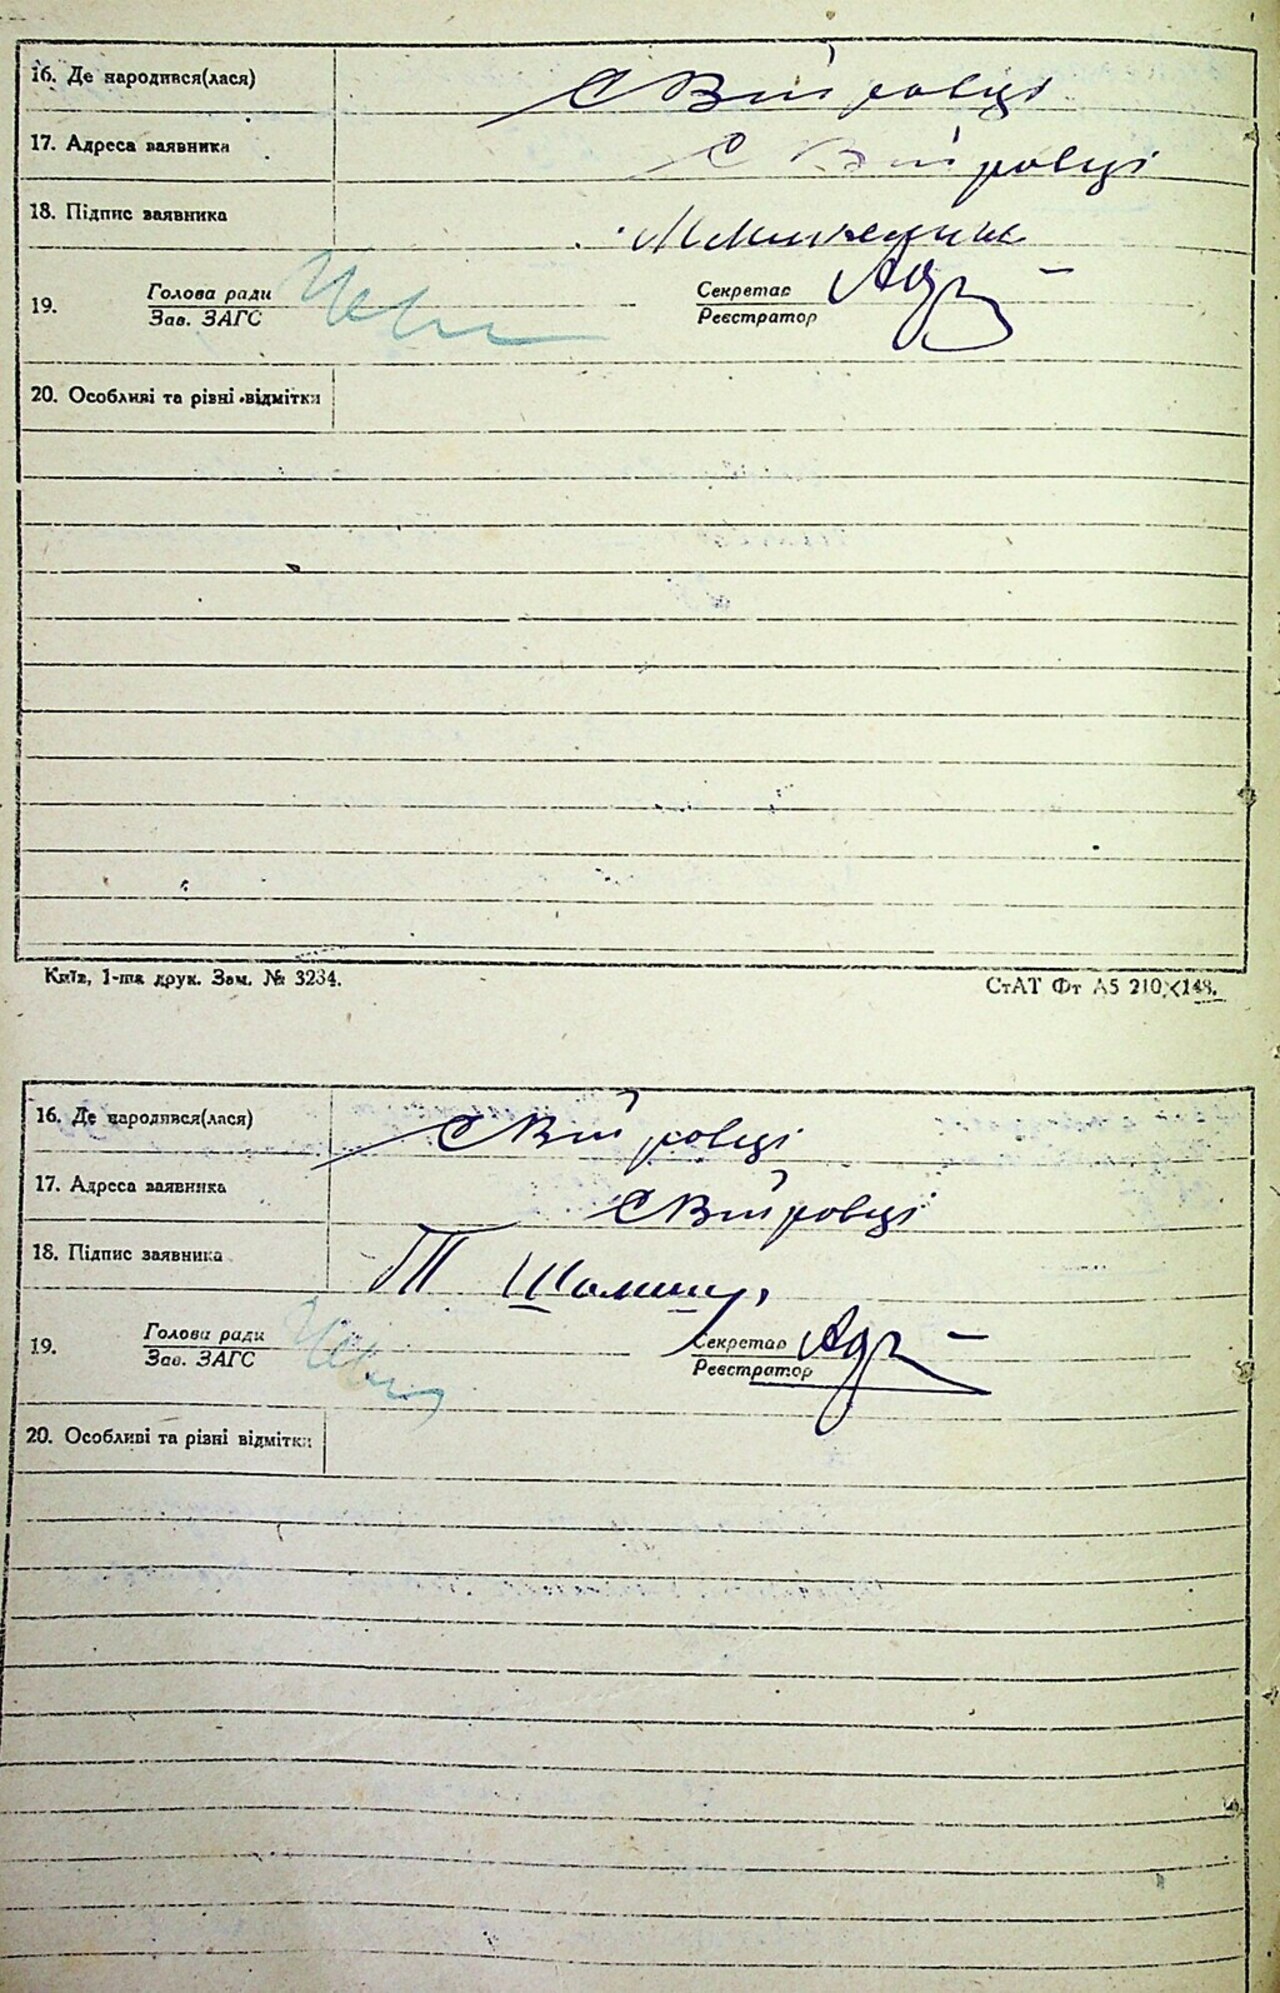 16. Де народився(лася) с Війтовці
17. Адреса заявника с Війтовці
18. Підпис заявника
19. Голова ради Секретар
Зав. ЗАГС Реєстратор
20. Особливі та різні відмітки
Київ, 1-ша друк. Зам. № 3234. СтАТ Фт А5 210×148.
16. Де народився(лася) с Війтовці
17. Адреса заявника с Війтовці
18. Підпис заявника
19. Голова ради Секретар
Зав. ЗАГС Реєстратор
20. Особливі та різні відмітки